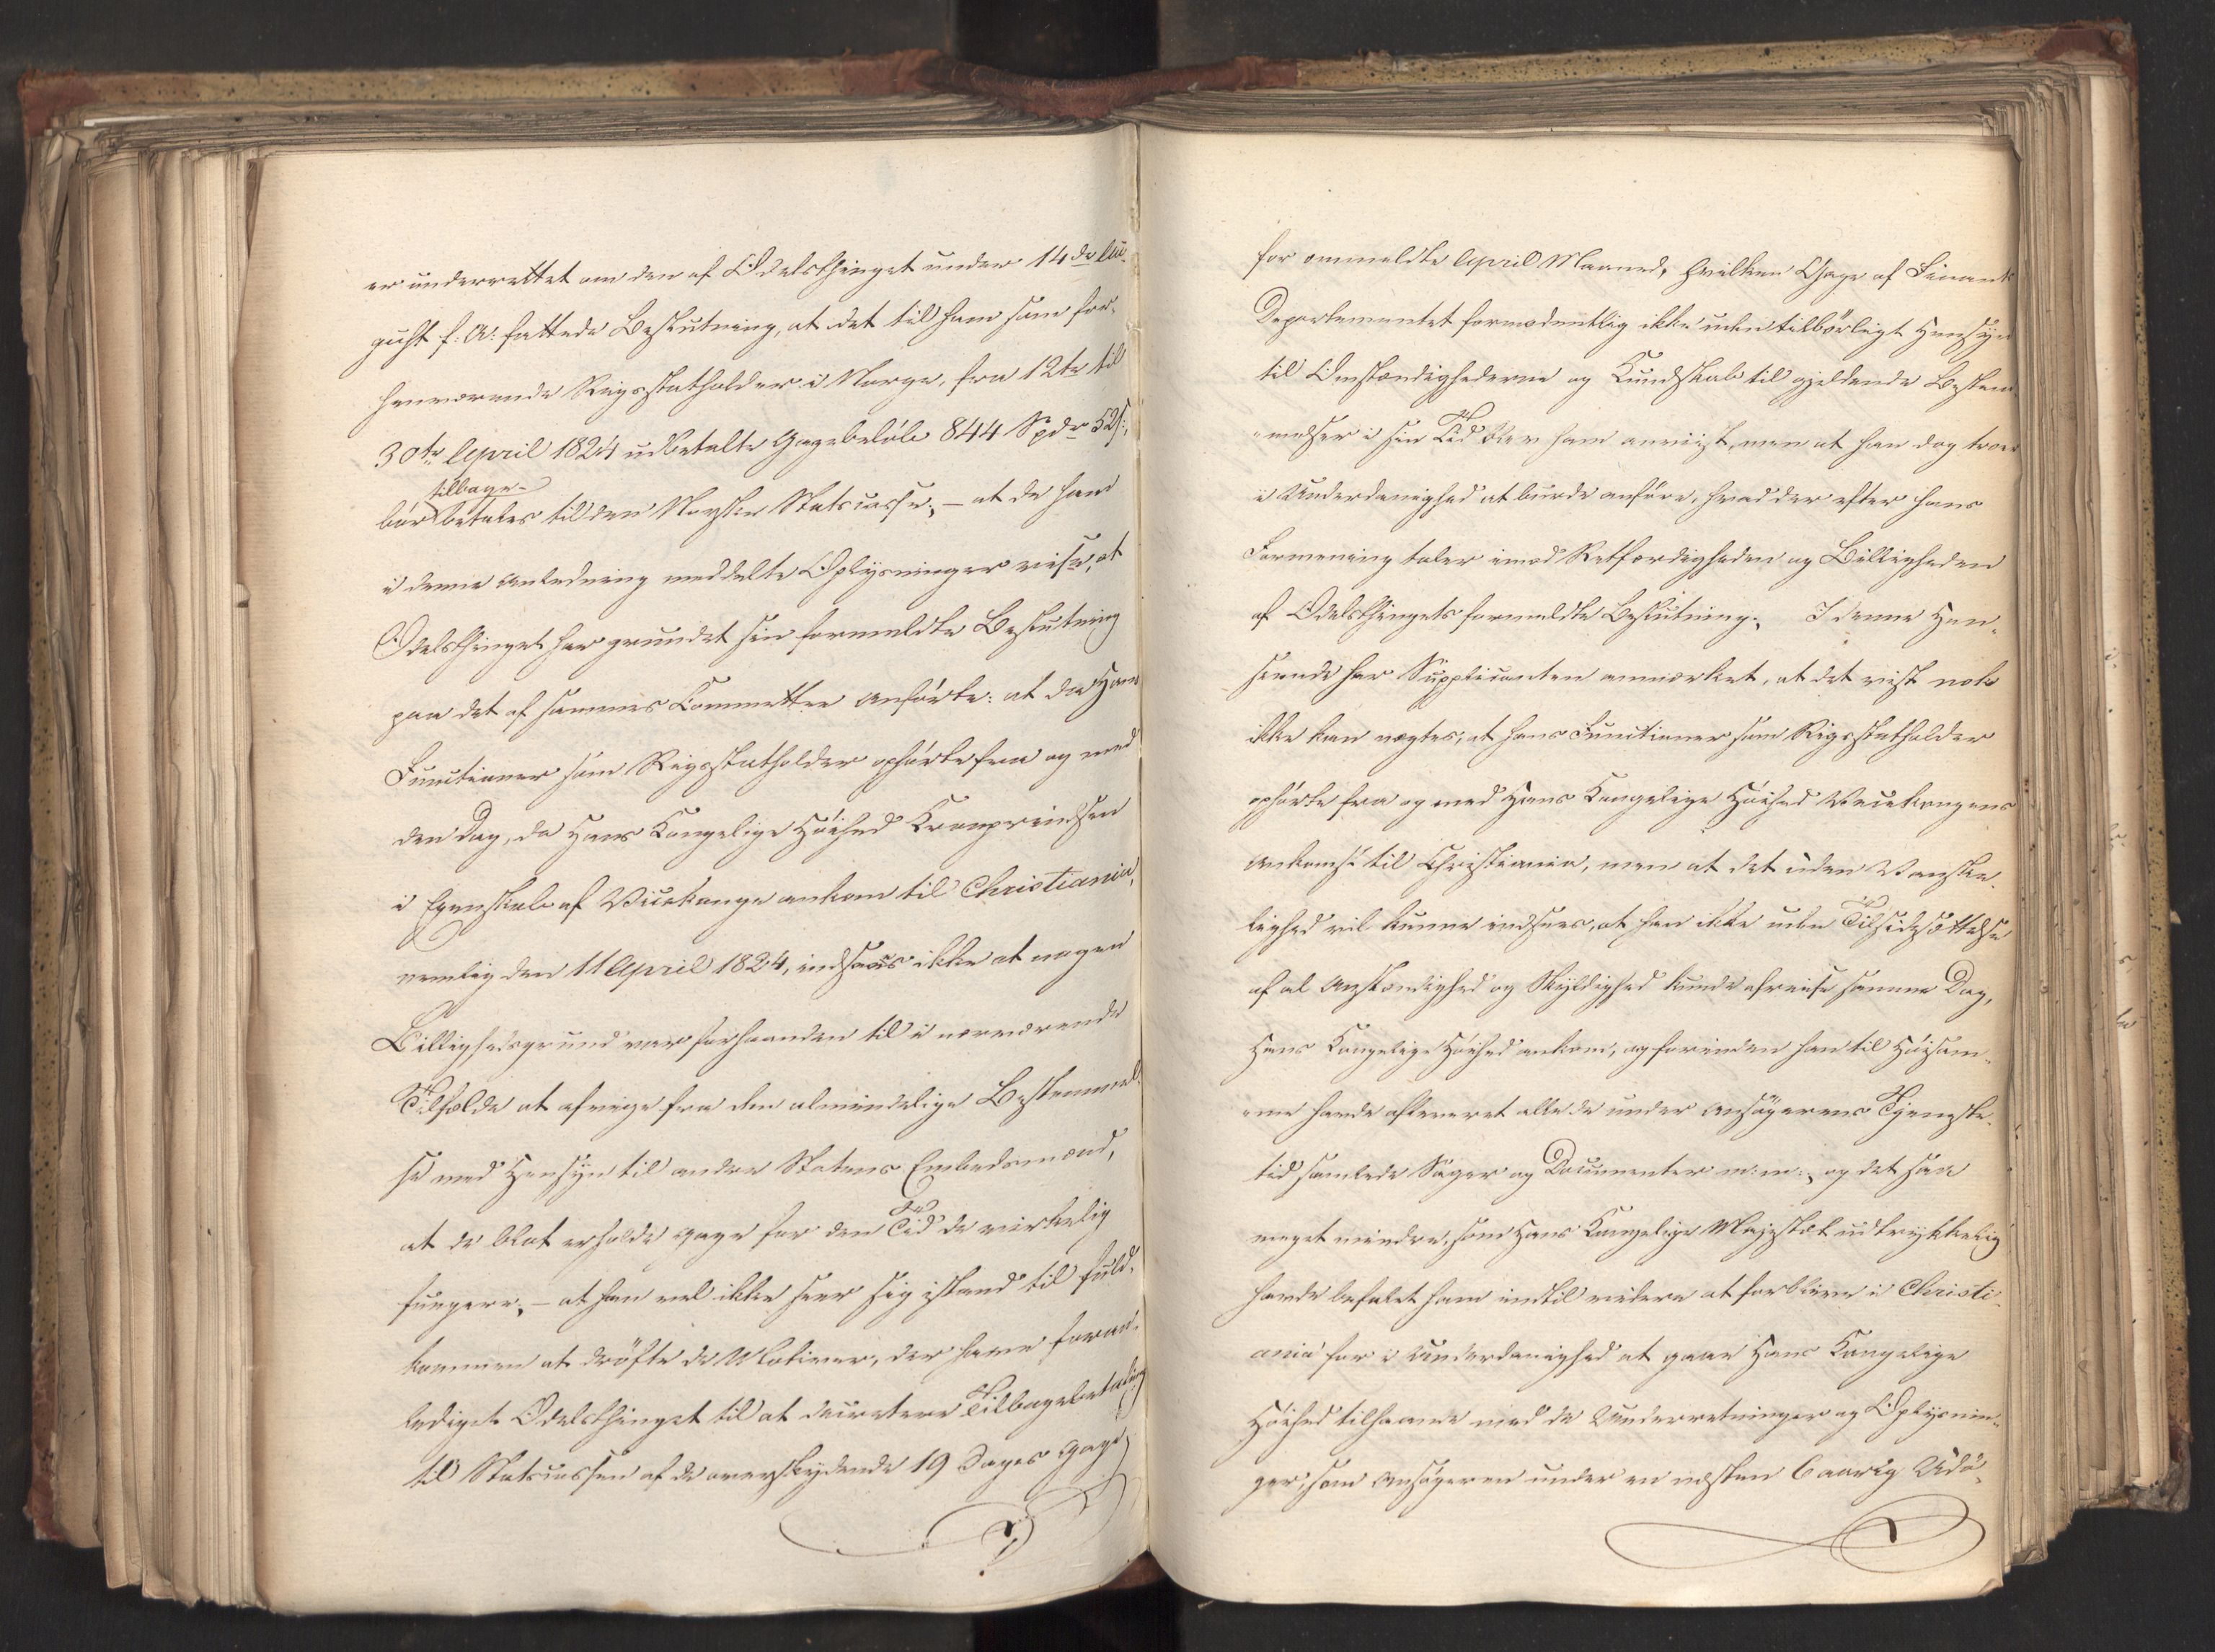 er underrettet om den af Odelsthinget under 14de Au-
gust f: A: fattede Beslutning, at det til ham som for-
henværende Rigsstatholder i Norge, fra 12te til
30te April 1824 udbetalte Gagebeløb 844 Spdr 52 s:,
tilbage-
bør betales til den Norske Statscasse; – at de ham
i denne Anledning meddelte Oplysninger viise, at
Odelsthinget har grundet sin formeldte Beslutning
paa det af sammes Committee anførte: at da Hans
Functioner som Rigsstatholder ophørte fra og med
den Dag, da Hans Kongelige Høihed Kronprindsen
i Egenskab af Vicekonge ankom til Christiania,
nemlig den 11 April 1824, indsaaes ikke at nogen
Billighedsgrund var forhaanden til i nærværende
Tilfælde at afvige fra den almindelige Bestemmel-
se med Hensyn til andre Statens Embedsmænd,
at de blot erholde Gage for den Tid de virkelig
fungere; – at han vel ikke seer sig istand til fuld-
kommen at drøfte de Motiver, der have foran-
lediget Odelsthinget til at decretere Tilbagebetaling
til Statscassen af de overskydende 19 Dages Gage
for ommeldte April Maaned, hvilken Gage af Finants
Departementet formodentlig ikke uden tilbørligt Hensyn
til Omstændighederne og Kundskab til gjeldende Bestem-
-melser i sin Tid blev ham anviist, men at han dog troer
i Underdanighed at burde anføre, hvad der efter hans
Formening taler imod Retfærdigheden og Billigheden
af Odelsthingets formeldte Beslutning; I denne Hen-
seende har Supplicanten anmærket, at det vist nok
ikke kan nægtes, at hans Functioner som Rigsstatholder
ophørte fra og med Hans Kongelige Høihed Vicekongens
Ankomst til Christiania, men at det uden Vanske-
lighed vil kunne indsees, at han ikke uden Tilsidesættelse
af al Anstændighed og Skyldighed kunde afreise samme Dag,
Hans Kongelige Høihed ankom, og forinden han til Høisam-
-me havde afleveret alle de under Ansøgerens Tjeneste-
tid samlede Sager og Documenter m: m:, og det saa
meget mindre, som Hans Kongelige Majestæt udtrykkelig
havde befalet ham indtil videre at forblive i Christi-
ania for i Underdanighed at gaae Hans Kongelige
Høihed tilhaande med de Underretninger og Oplysnin-
ger, som Ansøgeren under en næsten 6 aarig Udø-